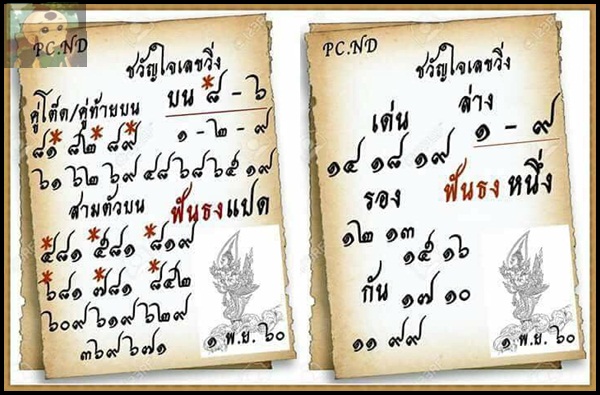 PC.ND
ขวัญใจเลขวิ่ง
บน *๘ - ๖
คู่โต๊ด/คู่ท้ายบน
๑ - ๒ - ๙
๘๑* ๘๒* ๘๙*
๖๑ ๖๒ ๖๙ ๔๘ ๖๘ ๖๕ ๑๙
สามตัวบน ฟันธงแปด
*๕๘๑ *๕๘๑ *๘๑๙
*๖๘๑ ๗๘๑ *๘๕๒
๖๐๙ ๖๑๙ ๖๒๙
๓๖๙ ๖๗๑
๑ พ.ย. ๖๐
PC.ND
ขวัญใจเลขวิ่ง
เด่น ล่าง
๑ - ๙
๑๔ ๑๘ ๑๙
รอง ฟันธง หนึ่ง
๑๒ ๑๓
๑๕ ๑๖
กัน ๑๗ ๑๐
๑๑ ๙๙
๑ พ.ย. ๖๐